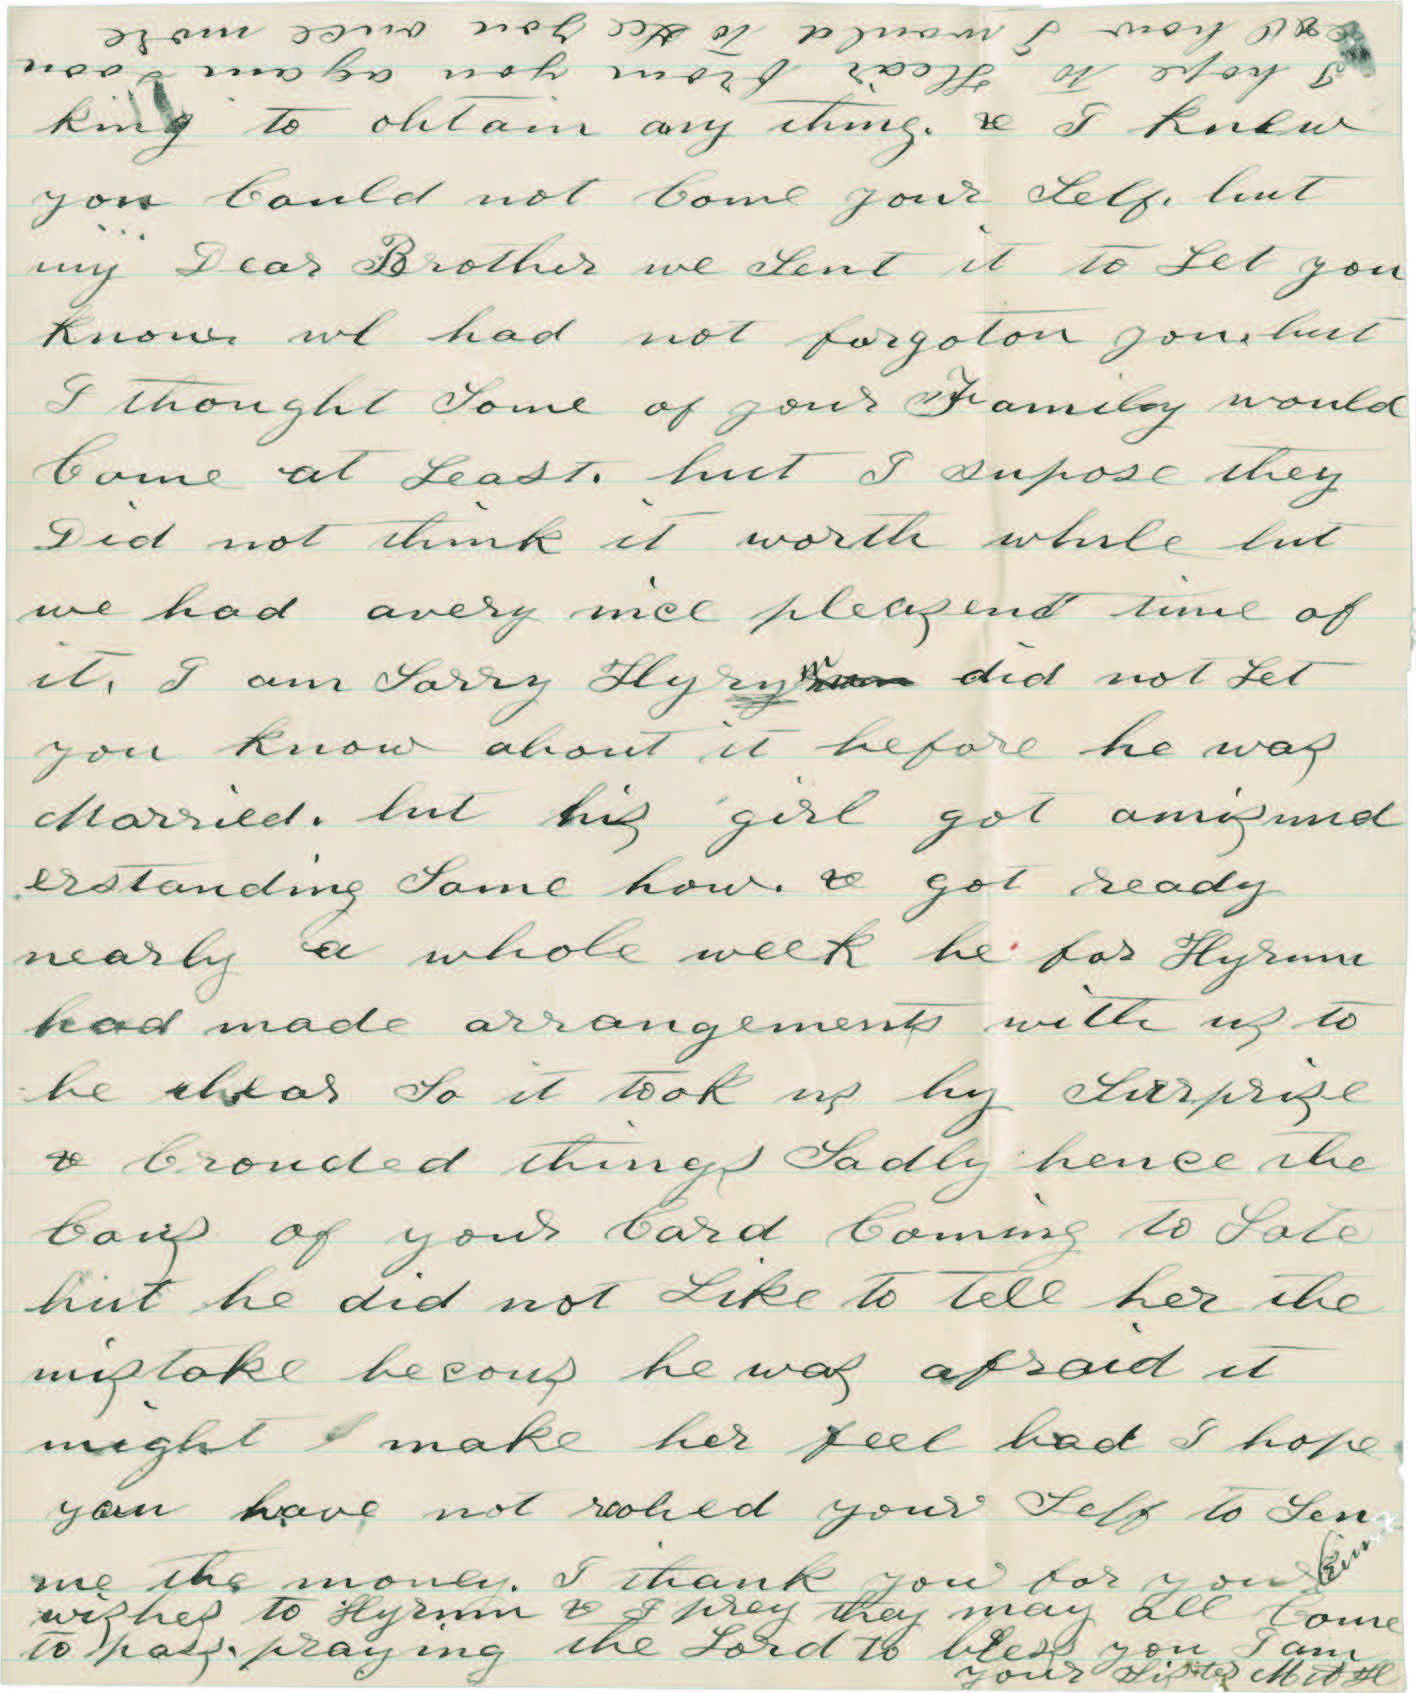 I hope to Hear from you again soon
how I would to see you once more
king to obtain any thing. & I knew
you Could not Come your Self. but
my Dear Brother we Sent it to Let you
know. we had not forgoton you. but
I thought Some of your Family would
Come at Least. but I supose they
Did not think it worth while but
we had avery nice pleasent time of
it. I am Sorry Hyrum did not Let
you know about it before he was
Married. but his girl got amisund
erstanding Some how. & got ready
nearly a whole week be for Hyrum
had made arrangements with us to
be thear So it took us by Surprise
& Crouded things Sadly hence the
Caus of your Card Coming to Late
but he did not Like to tell her the
mistake becous he was afraid it
might make her feel bad I hope
you have not robed your Self to Sen
me the money. I thank you for your Kind
wishes to Hyrum & I prey they may all Come
to pass. praying the Lord to bless you I am
your Sister M A H